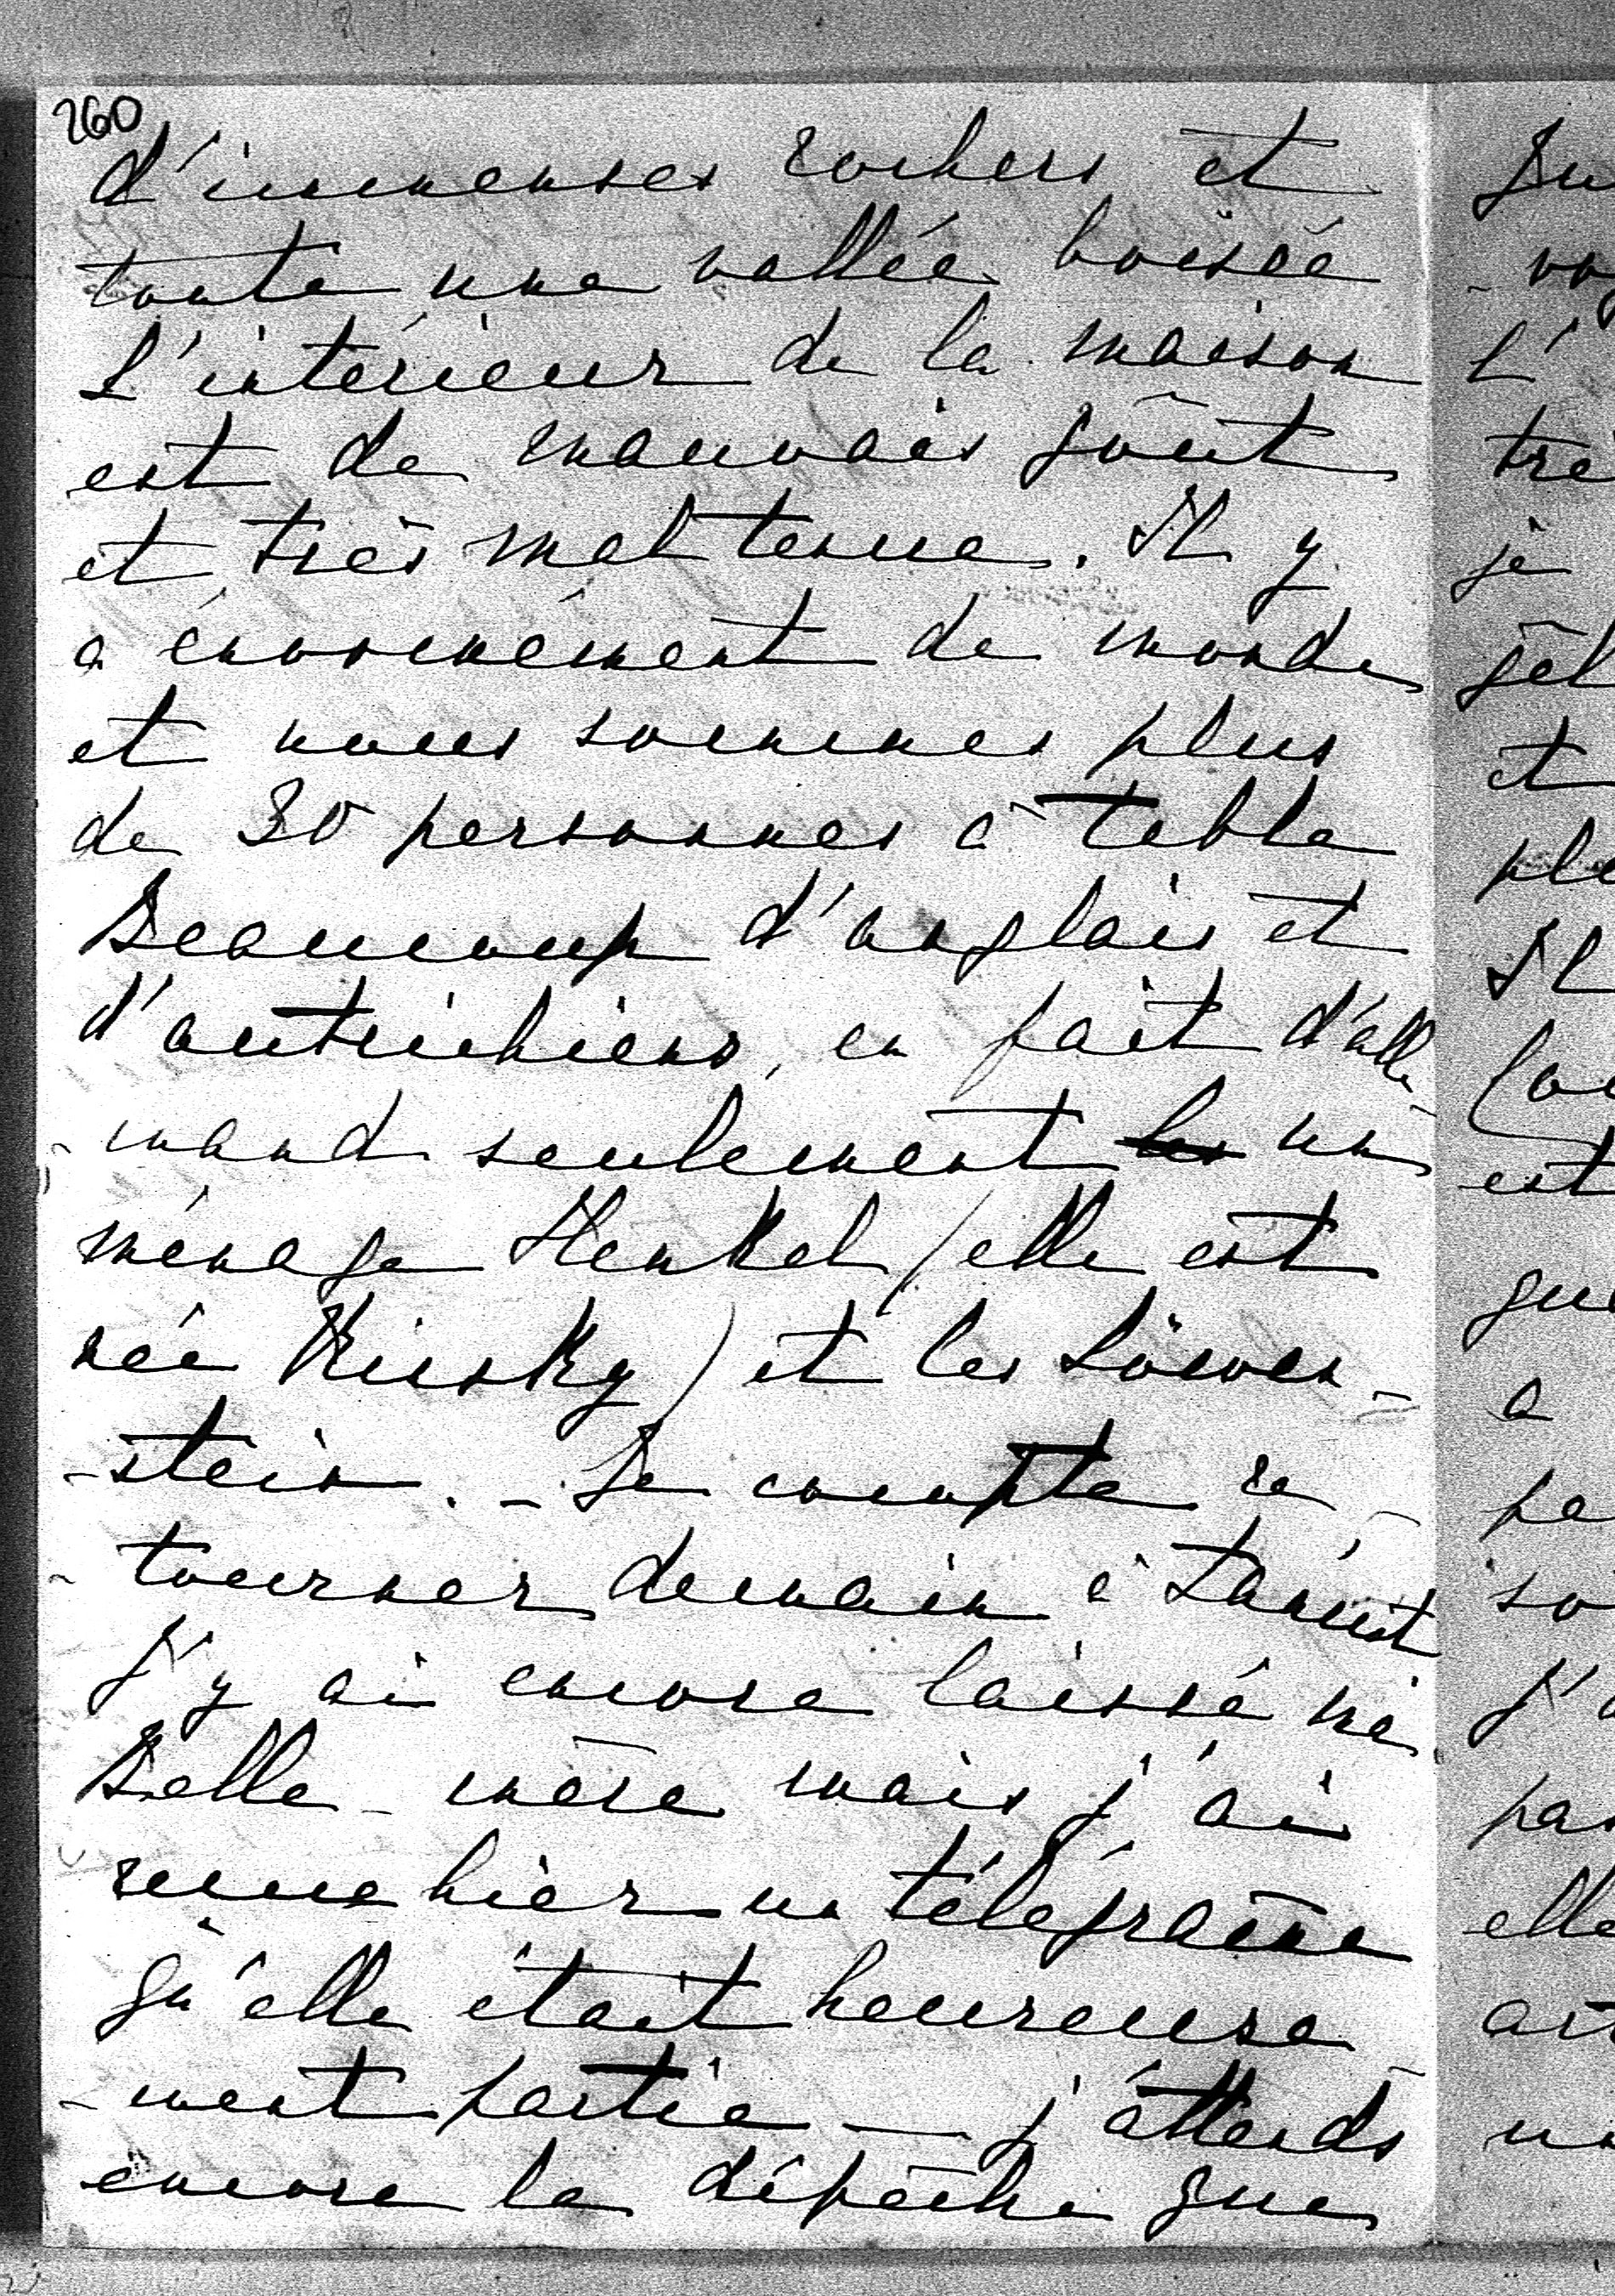 260
d'immenses rochers et
toute une vallée boisée
L'intérieur de la maison
est de mauvais goût
et très mal tenue. Il y
a énormément de monde
et nous sommes plus
de 30 personnes à table
Beaucoup d'anglais et
d'autrichiens, en fait d'alle
-mand seulement les un
ménage Henkel (elle est
née Kinsky) et les Löwen-
-stein. - Je compte re-
-tourner demain à Lancut
J'y ai encore laissé ma
Belle-mère mais j'ai
reçue hier un télégrame
qu'elle était heureuse
-ment partie — j'attends
encore la dépêche que
Du
-voy
L'
trè
je
gel
et
ple
Il
est
que
a
pa
so
J'
pas
elle